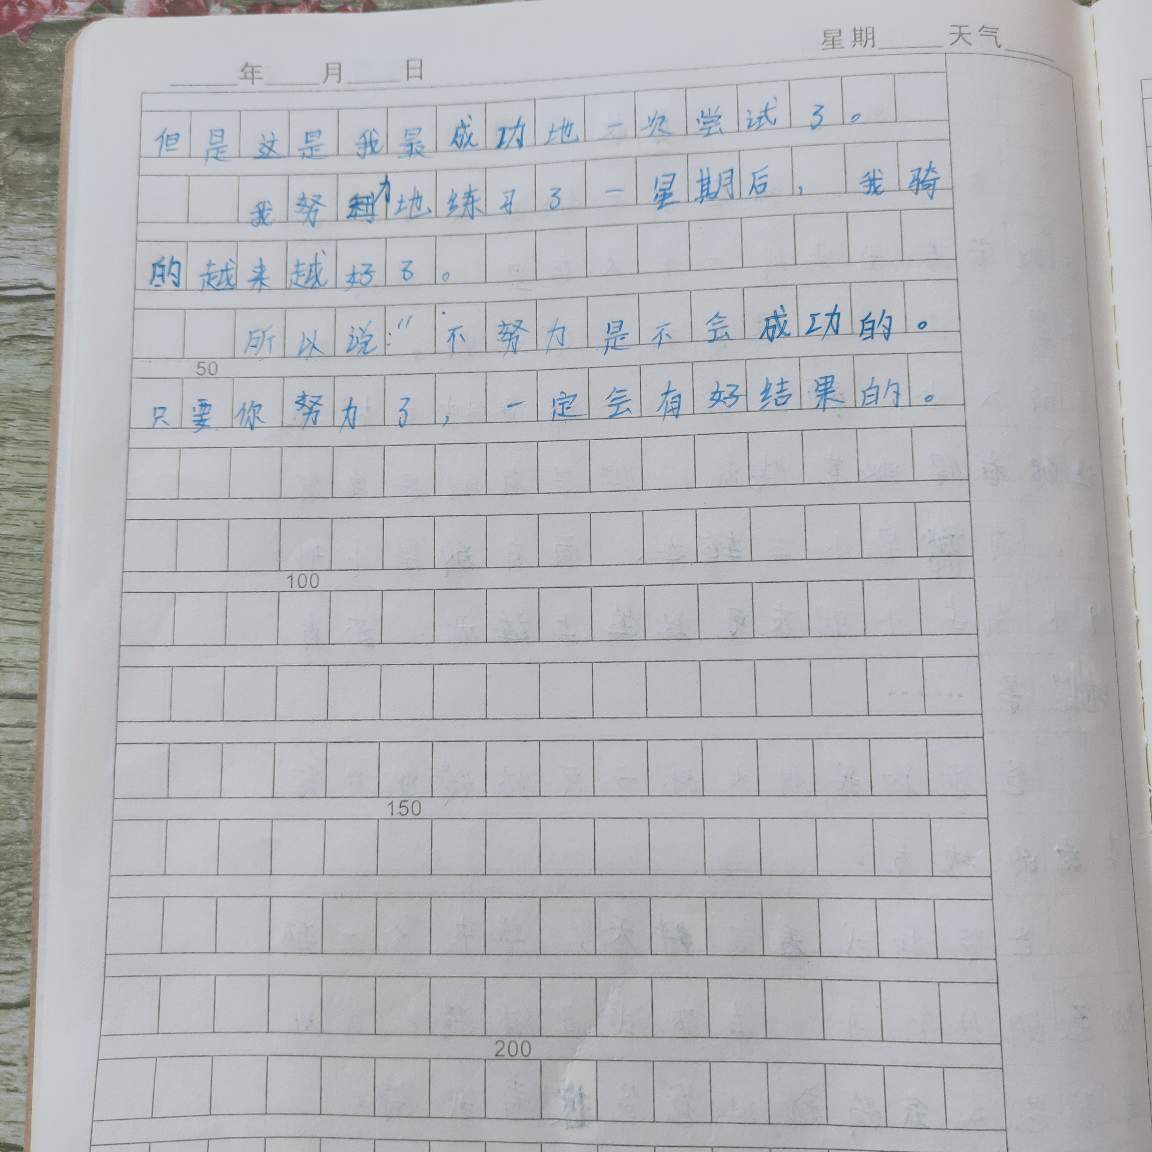 年 月 日 星期 天气
但是这是我最成功地一次尝试了。
我努力地练习了一星期后，我骑
的越来越好了。
所以说："不努力是不会成功的。
50
只要你努力了，一定会有好结果的。
100
150
200